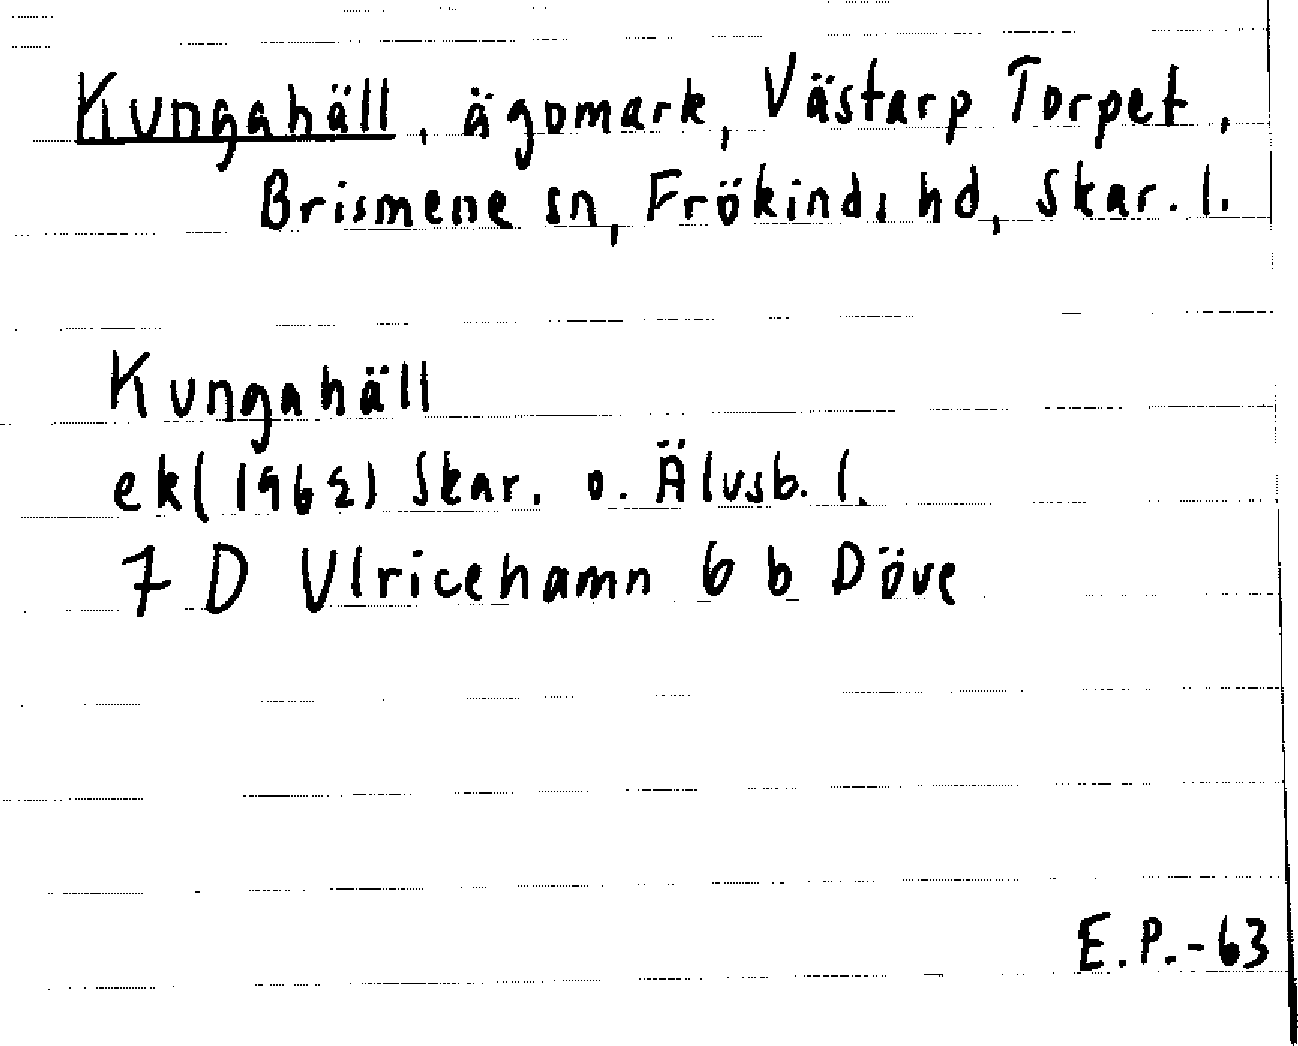 Kungahäll, ägomark, Västarp Torpet,
Brismene sn, Frökinds hd, Skar. l.
Kungahäll
ek(1962) Skar. o. Älvsb. l.
7 D Ulricehamn 6 b Döve
E.P.-63